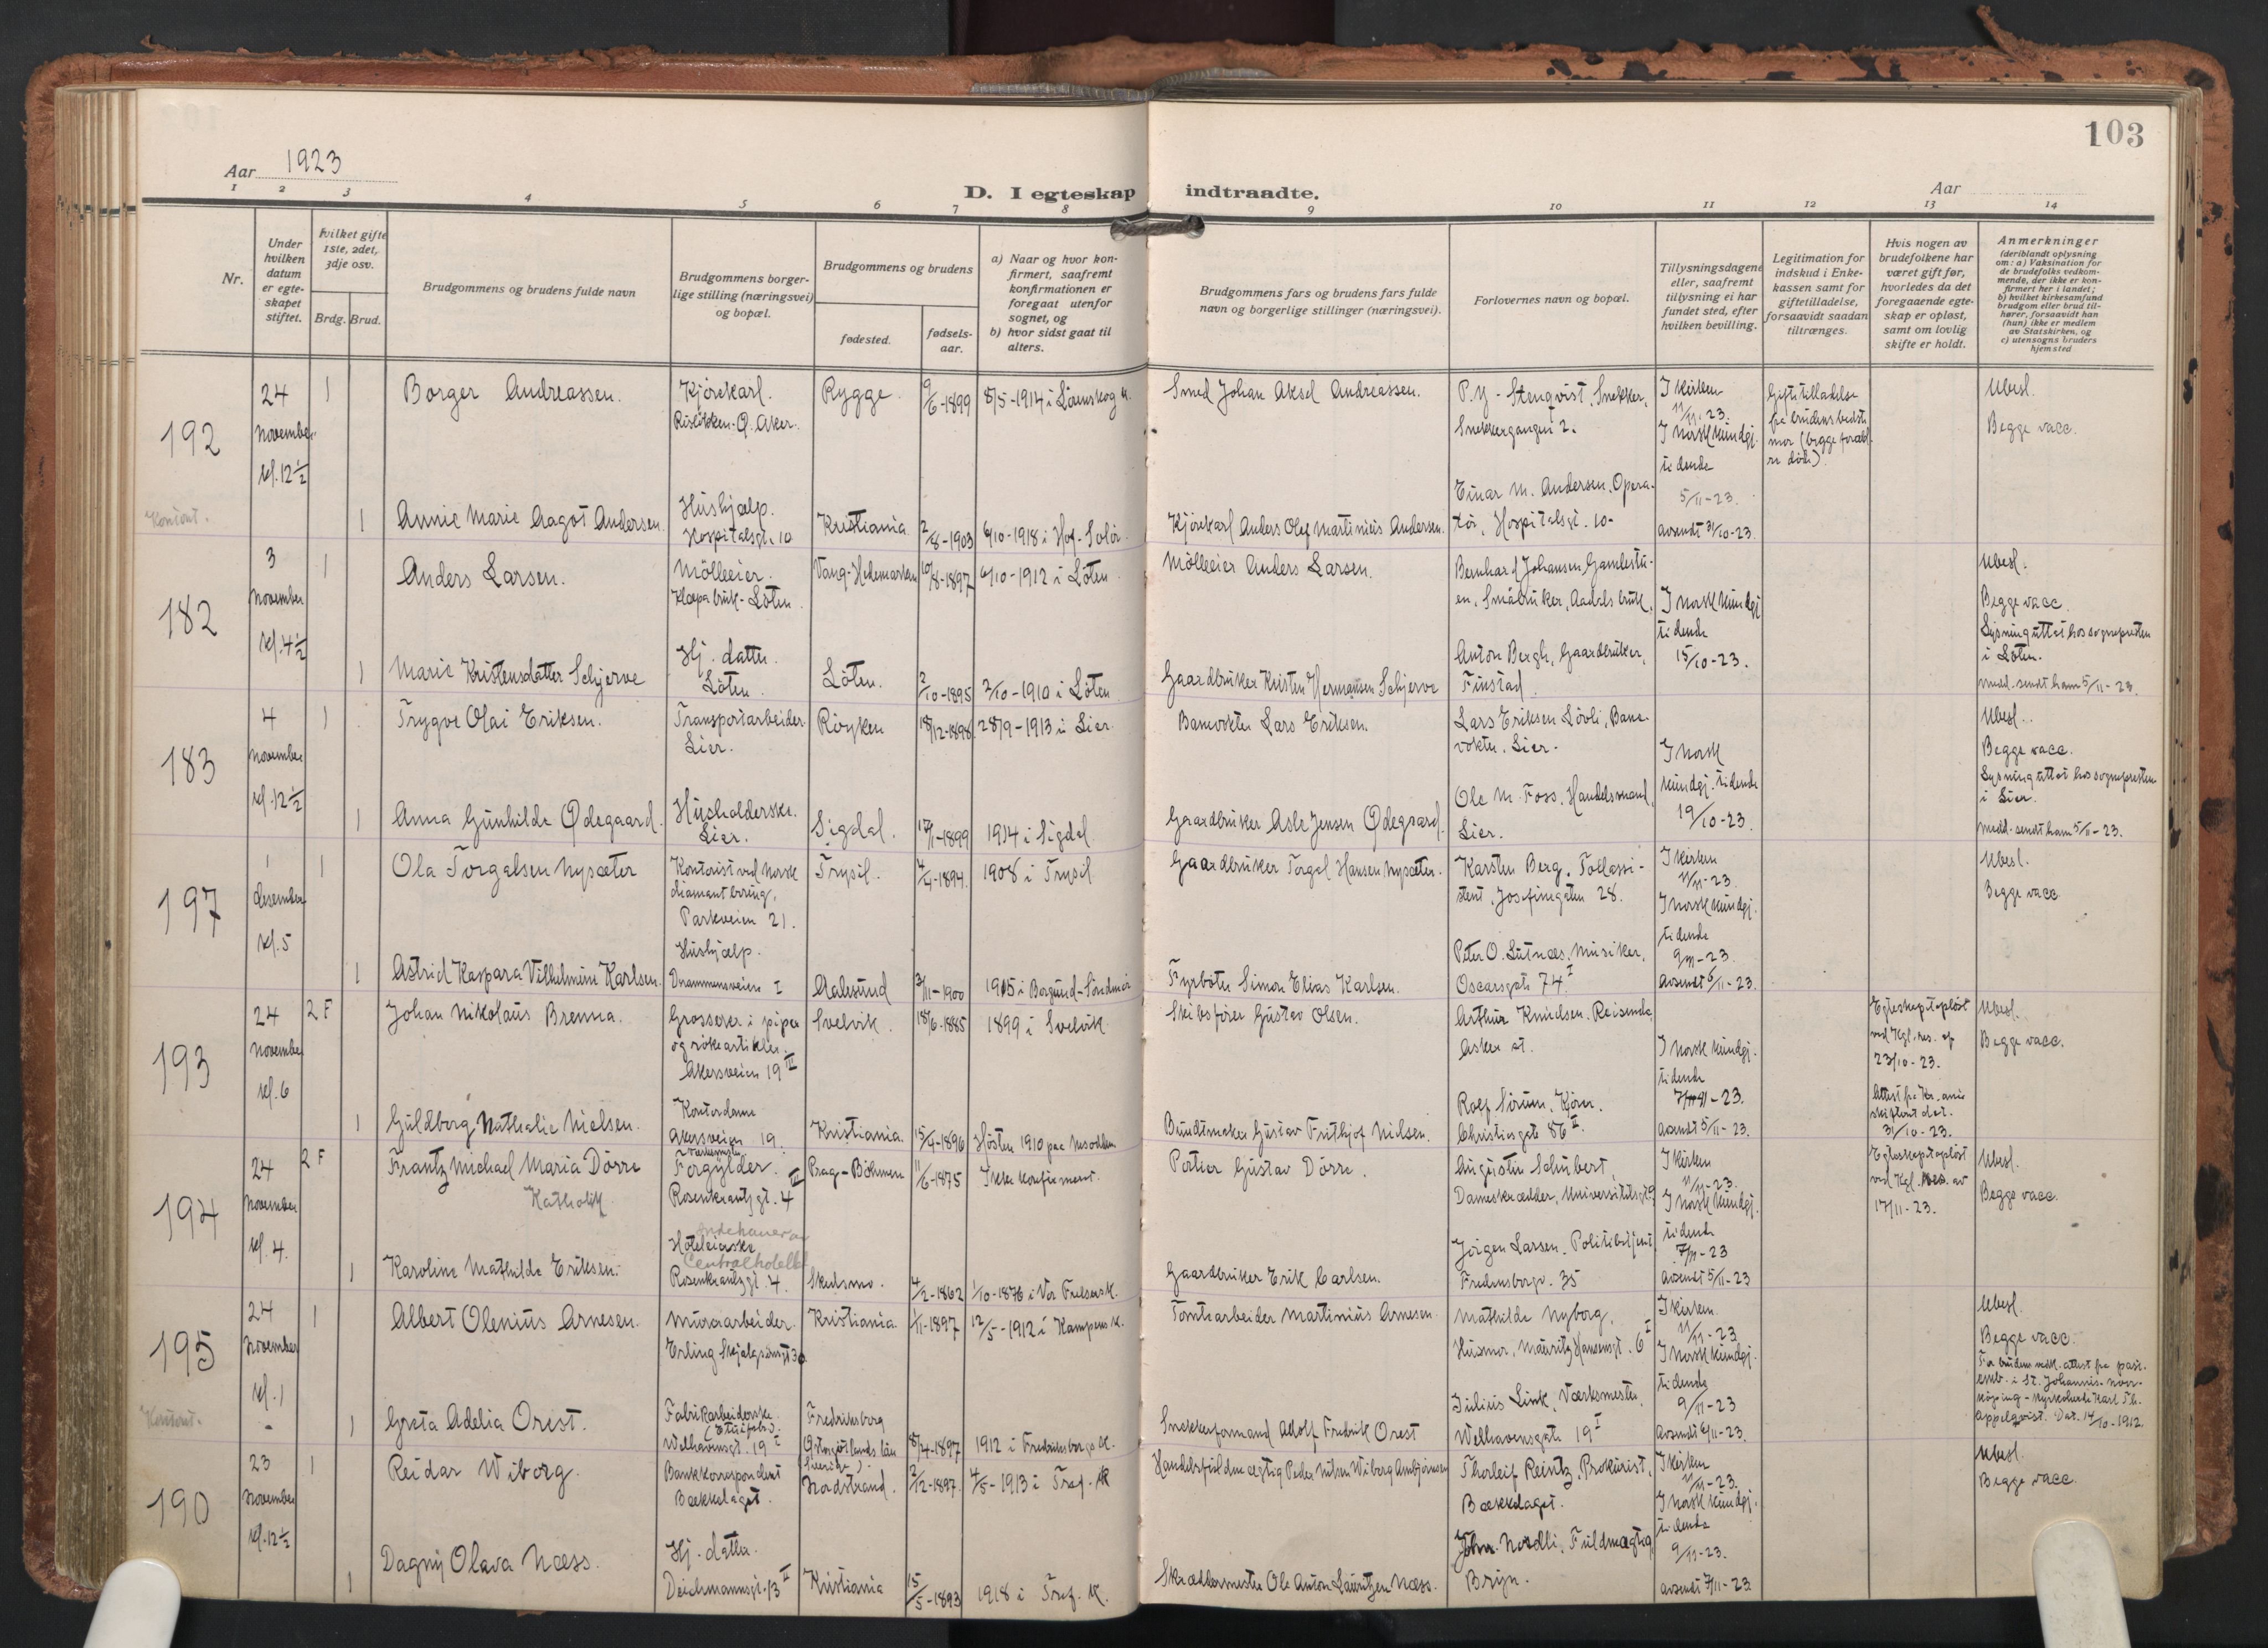 103
Aar 1923
D. I egteskap indtraadte.
Aar
1 2 3 4 5 6 7 8 9 10 11 12 13 14
Nr.
Under
hvilken
datum
er egte-
skapet
stiftet.
hvilket gifte
1ste, 2det,
3dje osv.
Brdg. Brud.
Brudgommens og brudens fulde navn
Brudgommens borger-
lige stilling (næringsvei)
og bopæl.
Brudgommens og brudens
fødested.
fødsels-
aar.
a) Naar og hvor kon-
firmert, saafremt
konfirmationen er
foregaat utenfor
sognet, og
b) hvor sidst gaat til
alters.
Brudgommens fars og brudens fars fulde
navn og borgerlige stillinger (næringsvei).
Forlovernes navn og bopæl.
Tillysningsdagene
eller, saafremt
tillysning ei har
fundet sted, efter
hvilken bevilling.
Legitimation for
indskud i Enke-
kassen samt for
giftetilladelse,
forsaavidt saadan
tiltrænges.
Hvis nogen av
brudefolkene har
været gift før,
hvorledes da det
foregaaende egte-
skap er opløst,
samt om lovlig
skifte er holdt.
Anmerkninger
(deriblandt oplysning
om: a) Vaksination for
de brudefolks vedkom-
mende, der ikke er kon-
firmert her i landet;
b) hvilket kirkesamfund
brudgom eller brud til-
hører, forsaavidt han
(hun) ikke er medlem
av Statskirken, og
c) utensogns bruders
hjemsted
192
24
November
kl. 12½
1
Borger Andreassen.
Kjørekarl.
Risløkken. Ø. Aker.
Rygge
9/6-1899
8/5-1914 i Lørenskog k.
Smed Johan Aksel Andreassen.
P. M. Stenqvist, Snekker,
Snekkergangen 2.
I kirken
11/11. 23.
I norsk kundgj.
tidende
5/11-23.
avsendt 31/10-23.
Giftetilladelse
fra brudens bedste
mor (begge foræld-
re døde)
Ubesl.
Begge vacc.
Kontant.
1
Annie Marie Aagot Andersen.
Hushjælp.
Hospitalsgt. 10
Kristiania
2/8-1903
6/10-1918 i Hof-Solør.
Kjørekarl Anders Olaf Martinius Andersen.
Einar M. Andersen. Opera-
tør, Hospitalsgt. 10-
182
3
November
kl. 4½
1
Anders Larsen.
Mølleeier.
Klæpa bruk-Løten.
Vang-Hedemarken
10/8-1897
6/10-1912 i Løten
Mølleeier Anders Larsen.
Bernhard Johansen Gamlestu-
en, Småbruker, Aadals bruk,
I norsk kundgj
tidende
15/10-23.
Ubesl.
Begge vacc.
Lysning uttat hos sognepresten
i Løten.
Medd. sendt ham 5/11-23.
1
Marie Kristensdatter Schjerve
Hj. datter.
Løten.
Løten.
2/10-1895
2/10-1910 i Løten
Gaardbruker Kristen Hermansen Schjerve
Anton Bergh, Gaardbruker,
Finstad.
183
4
November
kl. 12½
1
Trygve Olai Eriksen.
Transportarbeider
Lier.
Røyken
18/12-1898
28/9-1913 i Lier.
Banevokter Lars Eriksen.
Lars Eriksen Løvli, Bane-
vokter. Lier.
I norsk
kundgj. tidende
19/10-23.
Ubesl.
Begge vacc.
Lysning uttat hos sognepresten
i Lier.
Medd. sendt ham 5/11-23.
1
Anna Gunhilde Ødegaard.
Husholderske.
Lier.
Sigdal.
17/1-1899
1914 i Sigdal
Gaardbruker Asle Jensen Ødegaard.
Ole M. Foss. Handelsmand,
Lier.
197
1
desember
kl. 5
1
Ola Torgalsen Nysæter
Kontorist ved Norsk
diamantboring,
Parkveien 21.
Trysil.
4/4-1894.
1908 i Trysil
Gaardbruker Torgal Hansen Nysæter.
Karsten Berg. Toldassi-
stent, Josefinegaten 28.
I kirken
11/11-23.
I norsk kundgj.
tidende
9/11-23.
avsendt 6/11-23.
Ubesl.
Begge vacc
1
Astrid Kaspara Vilhelmine Karlsen.
Hushjælp.
Drammensveien I
Aalesund
3/11-1900
1915 i Borgund-Søndmør
Fyrbøter Simon Elias Karlsen.
Peter O. Lutnæs, Musiker,
Oscarsgate 74 I.
193
24
November
kl. 6
2 F
Johan Nikolaus Brenna.
Grosserer i piper
og røkeartikler.
Akersveien 19 III
Svelvik.
18/6-1885
1899 i Svelvik
Skibsfører Gustav Olsen.
Arthur Knudsen. Reisende,
Asker st.
I norsk kundgj.
tidende
7/11-23.
avsendt 5/11-23.
Egteskapet opløst
ved Kgl. res. af
23/10-23.
31/10-23.
Ubesl.
Begge vacc.
1
Guldborg Nathalie Nielsen.
Kontordame
Akersveien 19.
Kristiania.
15/4-1896
Høsten 1910 paa Nesodden
Buntmaker Gustav Frithjof Nielsen.
Rolf Sørum. Kjører.
Christiesgate 86 II.
194
24
November
kl. 4.
2 F
Frantz Michael Maria Dörre
Katholik
Forgylder.
Rosenkrantzgt. 4 III
Prag-Böhmen
11/6-1875
Ikke konfirmert.
Portier Gustav Dörre.
Augustin Schubert,
Dameskrædder, Universitetsgt 9
I kirken
11/11-23.
I norsk kundgj.
tidende
7/11-23
avsendt 5/11-23
Egteskapet opløst
ved Kgl. res. av
17/11-23.
Ubesl.
Begge vacc.
1
Karoline Mathilde Eriksen.
Hoteleierske
indehaver av
Centralhotellet
Rosenkrantzgt. 4.
Skedsmo.
4/2-1862
1/10-1876 i Vor Frelsers k.
Gaardbruker Erik Carlsen.
Jørgen Larsen. Politibetjent,
Fredensborgv. 35
195
24
November
kl. 1
1
Albert Olenius Arnesen.
Murarbeider.
Erling Skjalgsønsgt 30
Kristiania.
1/11-1897
12/5-1912 i Kampens k.
Tomtearbeider Martinius Arnesen.
Mathilde Nyborg,
Husmor, Mauritz Hansensgt. 6 I
I kirken.
11/11-23
I norsk kundgj.
tidende
9/11-23
avsendt 6/11-23.
Ubesl.
Begge vacc.
For brudens vedk. attest fra past.
emb. i St. Johannis-Norr-
köping-Kyrkoherde Karl Th.
Appelqvist. Dat. 14/10-1912.
Kontant.
1
Greta Adelia Orest.
Fabrikarbeiderske.
(Etuifabr.)
Welhavensgt. 19 I
Fredriksborg
Östergötlands län
(Sverige).
8/4-1897
1912 i Fredriksbergs k.
Snekkerformand Adolf Fredrik Orest
Julius Link, Værksmester,
Welhavensgate 19 I
190
23
November
kl. 12½
1
Reidar Wiborg.
Bankkorrespondent
Bækkelaget.
Nordstrand.
2/12-1897.
4/5-1913 i Tref. K
Thorleif Reintz, Prokurist,
Bækkelaget.
I kirken
11/11-23.
I norsk kundgj.
tidende
9/11-23.
avsendt 7/11-23
Ubesl.
Begge vacc.
1
Dagny Olava Næss.
Hj. datter.
Deichmannsgt. 13 II
Kristiania
15/5-1893
1918 i Tref. K.
Skræddermester Ole Anton Lauritzen Næss.
Johan Nordli, Fuldmægtig,
Bryn.